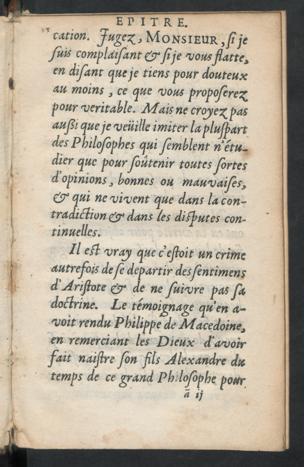 EPITRE.
cation. Jugez, MONSIEUR, si je
suis complaisant & si je vous flatte,
en disant que je tiens pour douteux
au moins, ce que vous proposerez
pour veritable. Mais ne croyez pas
aussi que je veüille imiter la pluspart
des Philosophes qui semblent n'étu-
dier que pour soûtenir toutes sortes
d'opinions, bonnes ou mauvaises,
& qui ne vivent que dans la con-
tradiction & dans les disputes con-
tinuelles.
Il est vray que c'estoit un crime
autrefois de se departir des sentimens
d'Aristote & de ne suivre pas sa
doctrine. Le témoignage qu'en a-
voit rendu Philippe de Macedoine,
en remerciant les Dieux d'avoir
fait naistre son fils Alexandre du
temps de ce grand Philosophe pour
ã ij